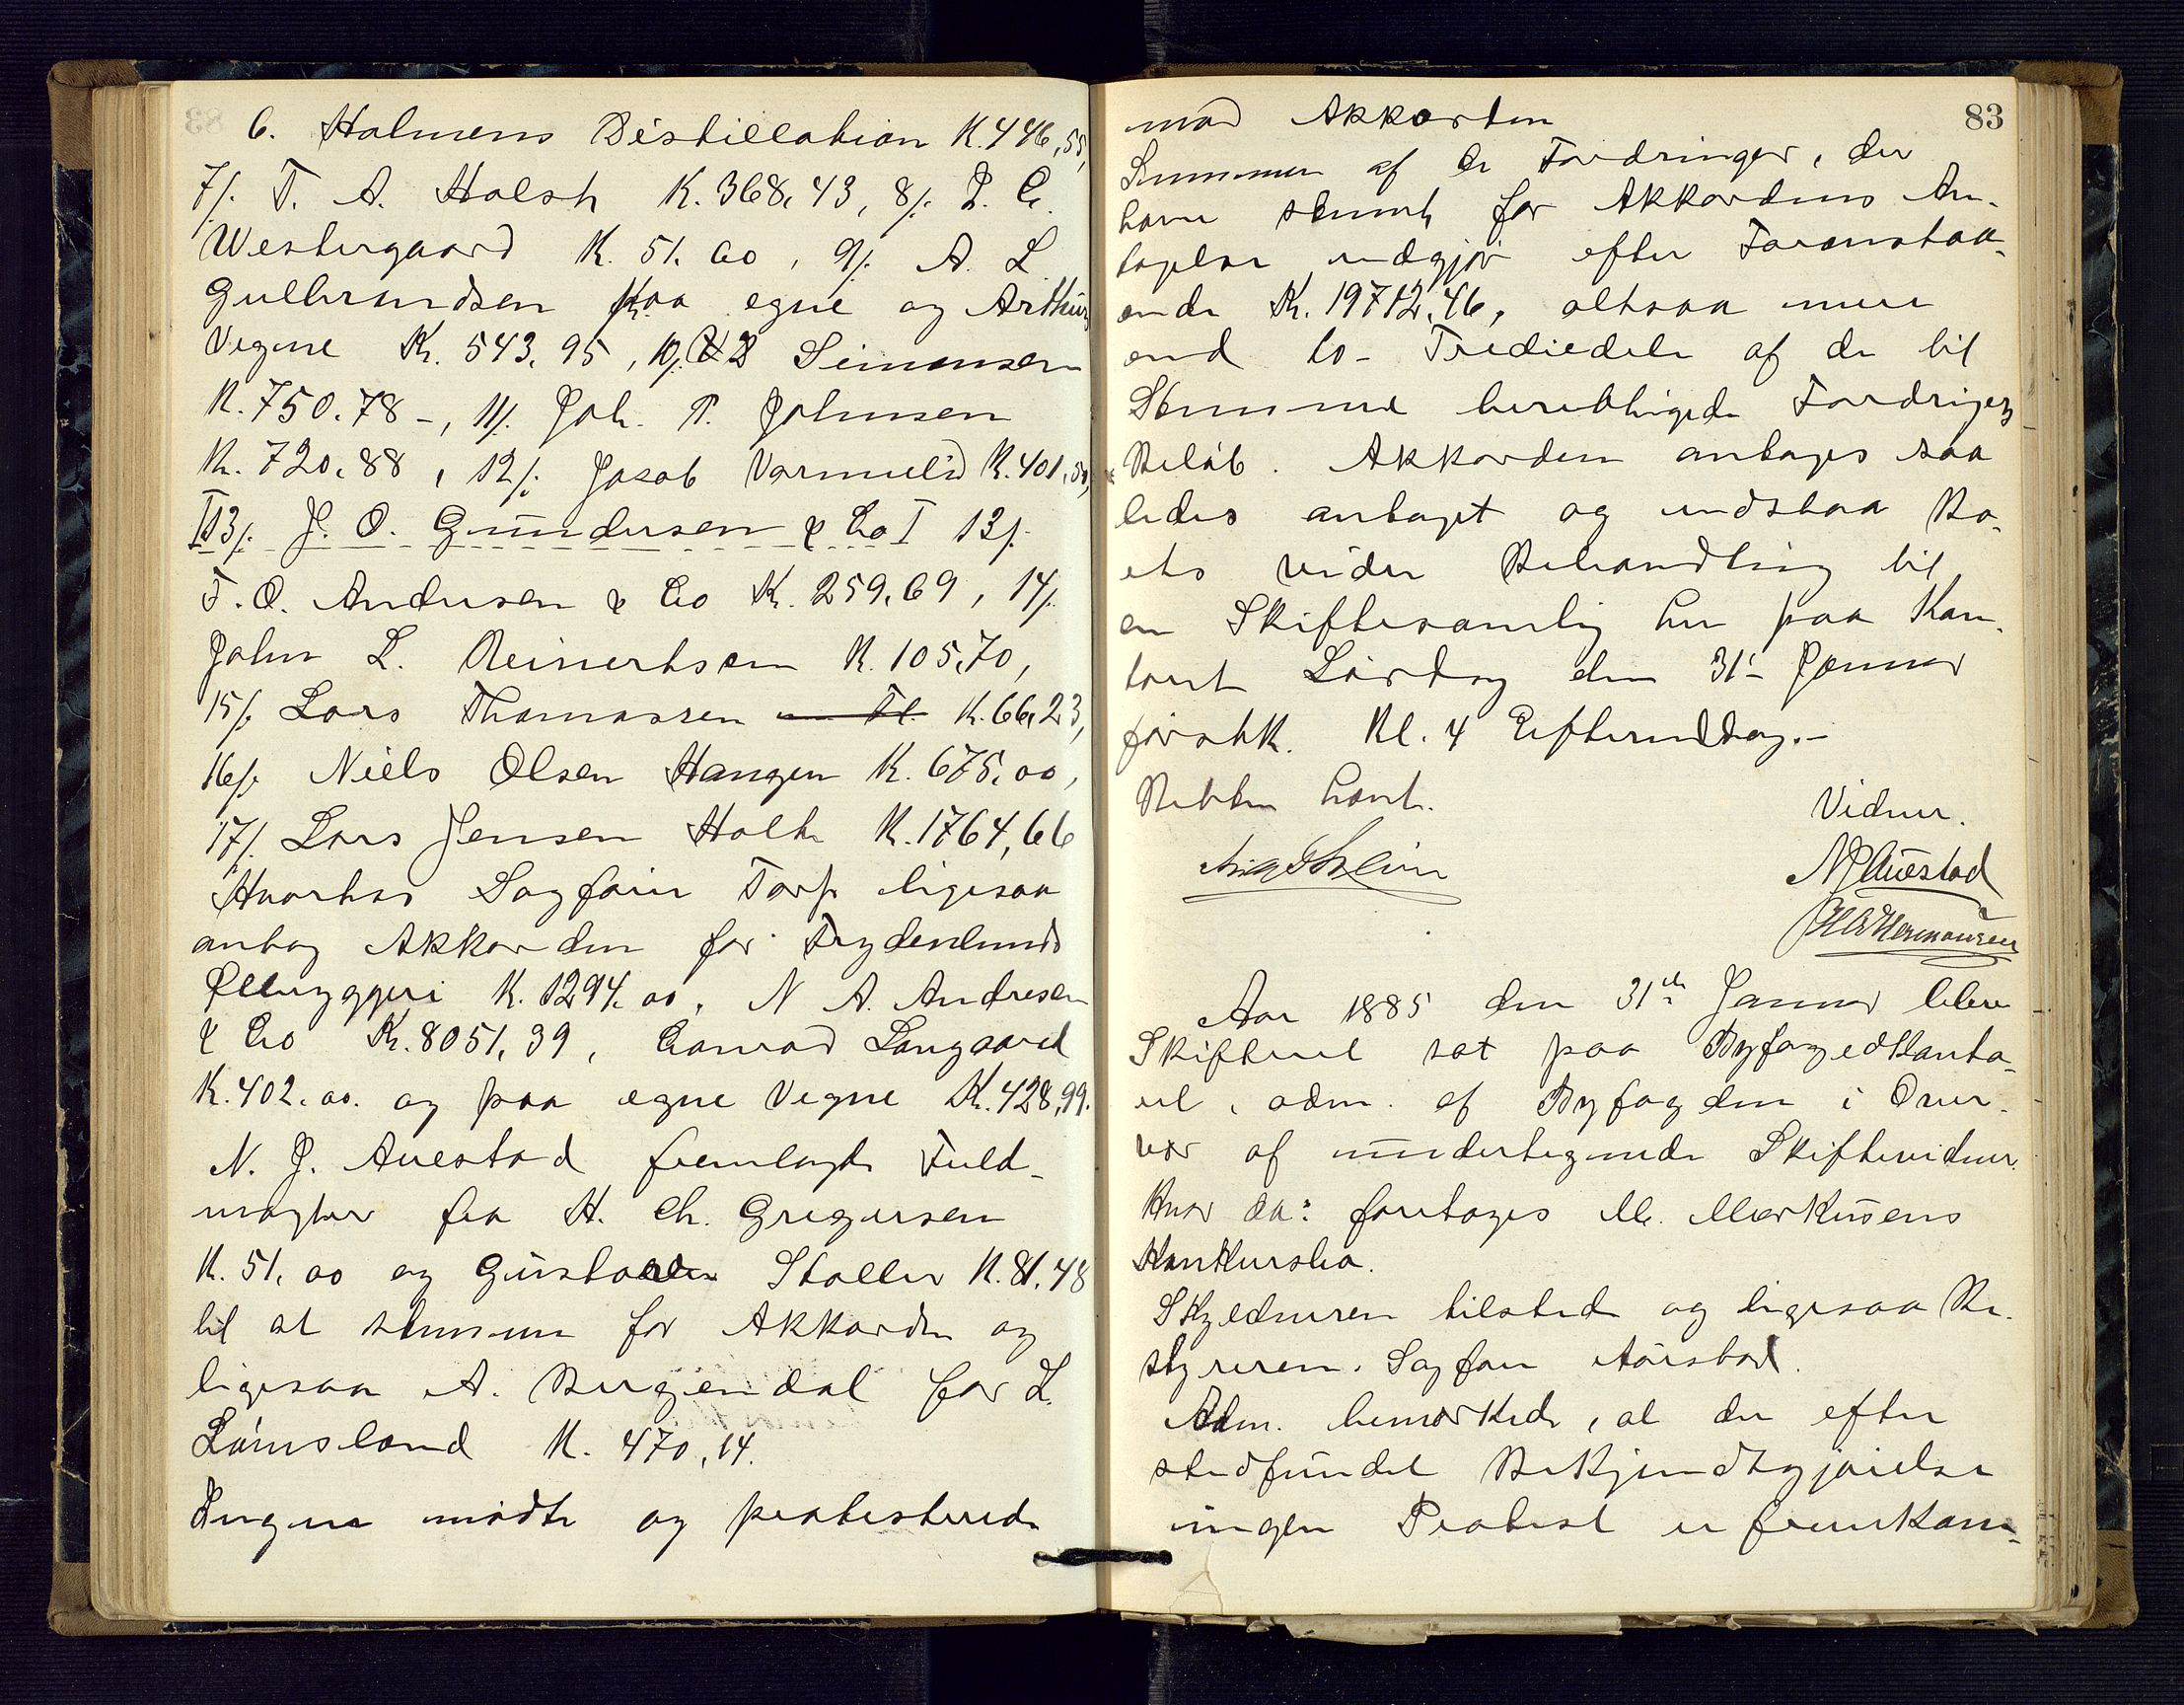 6. Holmens Distillation K. 446,55,
7/. T. A. Holst K. 368,43, 8/. L. C.
Westergaard K. 51.60, 9/. A. L.
Gulbrandsen paa egne og Arthurs
Vegne Kr. 543,95, 10/. Simonsen
K. 750.78 -, 11/. Joh. T. Johnsen
Kr. 720.88, 12/. Jacob Varmelid K. 401,50,
13/. J. O. Gundersen & Co 13/.
T. O. Andersen & Co K. 259,69, 14/.
John L. Reinertsen K. 105,70,
15/. Lars Thomassen K. 66,23,
16/. Niels Olsen Hangen K. 675,00,
17/. Lars Jensen Holte K. 1764,66
Hvorhos Sagfører Torp ligesaa
antog Akkorden for Frydenlunds
Ølbryggeri K. 1294.00, N. A. Andresen
& Co Kr. 8051,39, Conrad Langaard
K. 402.00. og paa egne Vegne K. 428,99.
N. J. Auestad fremlagde Fuld-
magter fra H. Ch. Gregersen
K. 51.00 og Gustav Staller K. 81.48
til at stemme for Akkorden og
ligesaa A. Bergendal for L.
Lønsland K. 470,14.
Ingen mødte og protesterede
83
mod Akkorden
Summen af de Fordringer, der
have stemt for Akkordens An-
tagelse udgjør efter Foranstaa-
ende Kr. 19712.46, altsaa mere
end to-Trediedele af de til
Stemme berettigede Fordringers
Beløb. Akkorden antages saa
ledes antaget og udstaar Bo-
ets videre Behandling til
en Skiftesamling her paa Kon-
toret Lørdag den 31' Januar
førstk. Kl. 4 Eftermiddag.-
Retten hævet.
Vidner.
NJAuestad
Hermansen
Aar 1885 den 31te Januar blev
Skifteret sat paa Byfogedkonto-
ret, adm. af Byfogden i Over-
vær af undertegnede Skiftevidner.
Hvor da: foretoges M. Markusens
Konkursbo.
Skyldneren tilstede og ligesaa Be-
styreren, Sagfører Aarstad.
Adm. bemærkede, at der efter
stedfundet Bekjendtgjørelse
ingen Protest er fremkom-